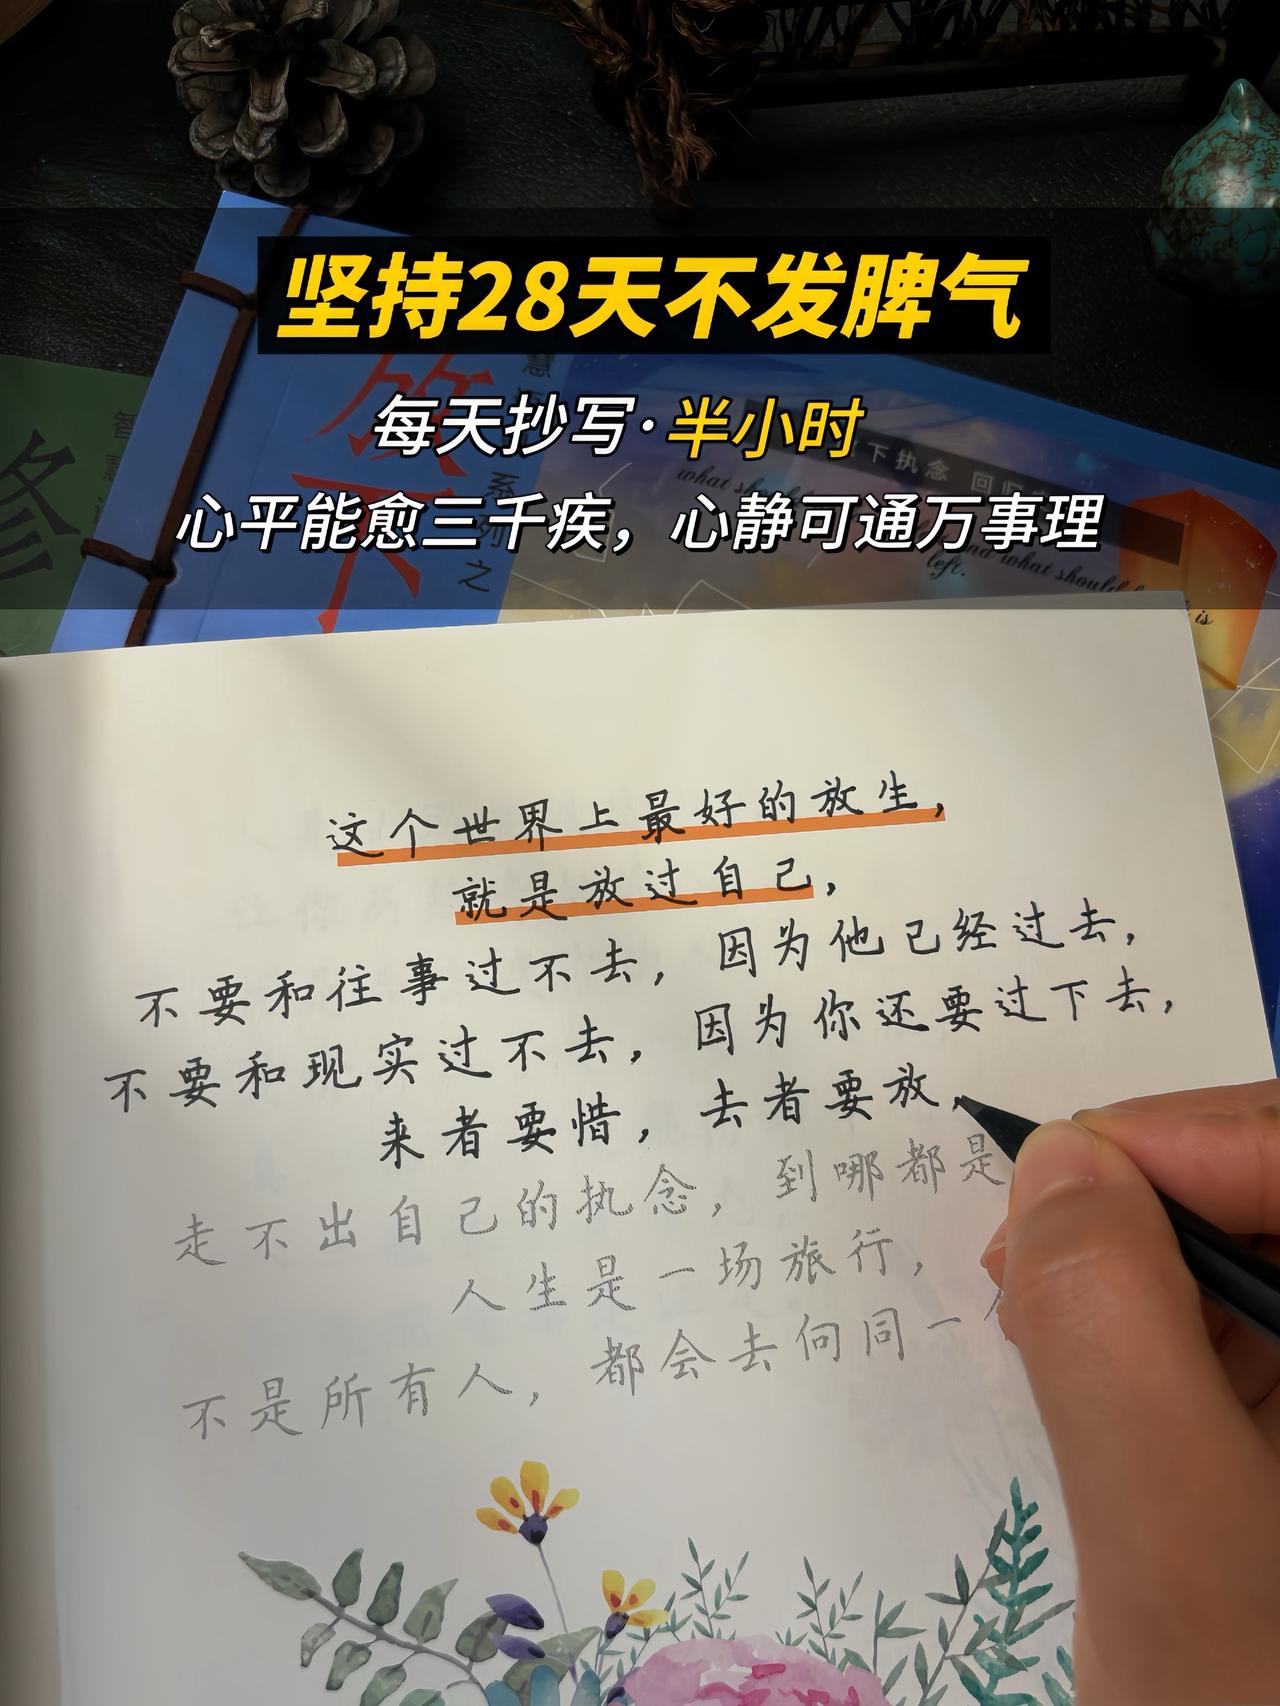 坚持28天不发脾气
每天抄写·半小时
心平能愈三千疾，心静可通万事理
放下
系列之
修
智慧
下执念 回归
what should
and what should be
left.
is
这个世界上最好的放生，
就是放过自己，
不要和往事过不去，因为他已经过去，
不要和现实过不去，因为你还要过下去，
来者要惜，去者要放，
走不出自己的执念，到哪都是
人生是一场旅行，
不是所有人，都会去向同一